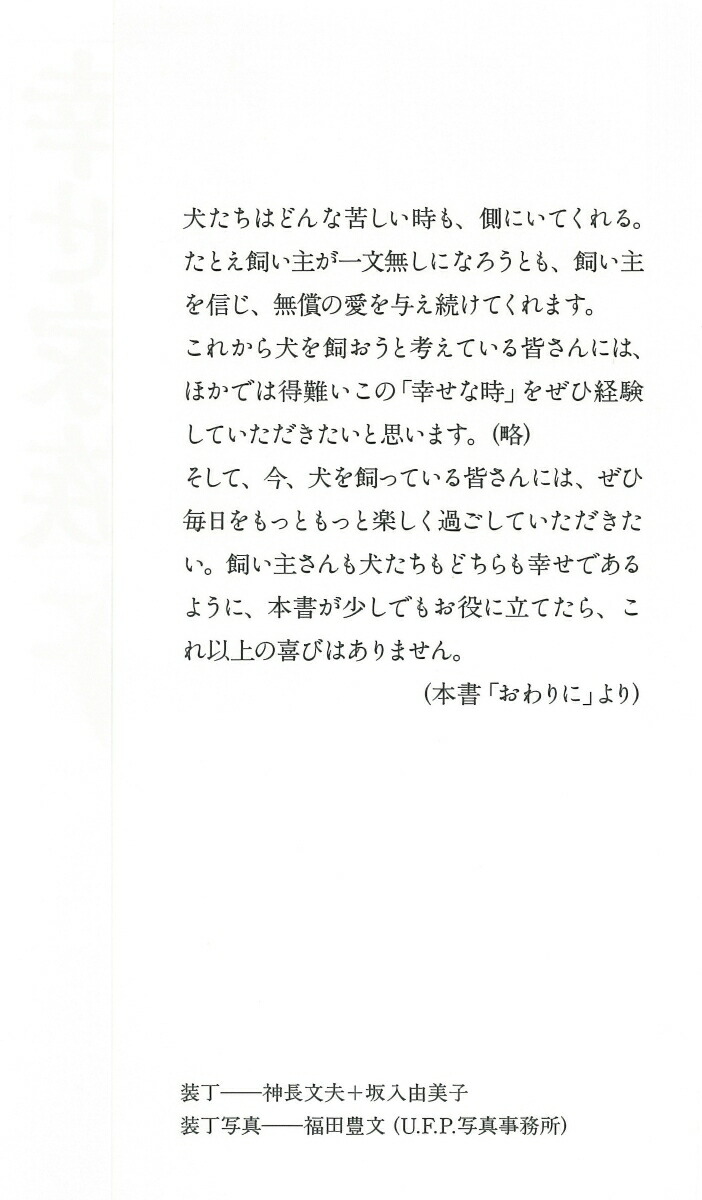 犬たちはどんな苦しい時も、側にいてくれる。
たとえ飼い主が一文無しになろうとも、飼い主
を信じ、無償の愛を与え続けてくれます。
これから犬を飼おうと考えている皆さんには、
ほかでは得難いこの「幸せな時」をぜひ経験
していただきたいと思います。(略)
そして、今、犬を飼っている皆さんには、ぜひ
毎日をもっともっと楽しく過ごしていただきた
い。飼い主さんも犬たちもどちらも幸せである
ように、本書が少しでもお役に立てたら、こ
れ以上の喜びはありません。
(本書「おわりに」より)
装丁——神長文夫＋坂入由美子
装丁写真——福田豊文 (U.F.P.写真事務所)